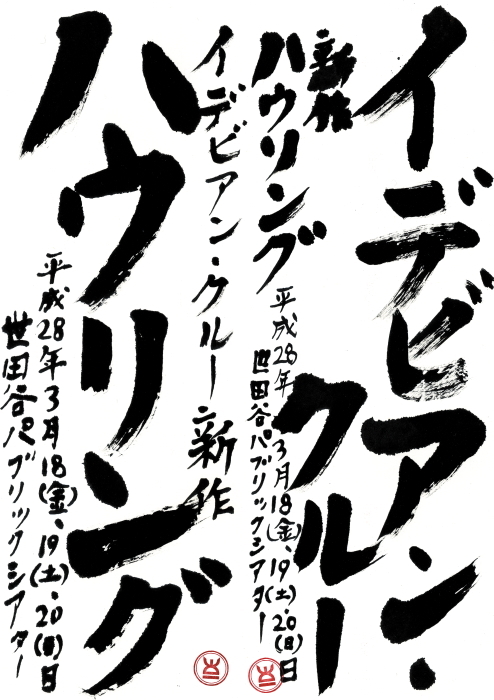 イデビアン・
クルー
新作
ハウリング
平成28年3月18(金)、19(土)、20(日)日
世田谷パブリックシアター
イデビアン・クルー新作
ハウリング
平成28年3月18(金)、19(土)、20(日)日
世田谷パブリックシアター